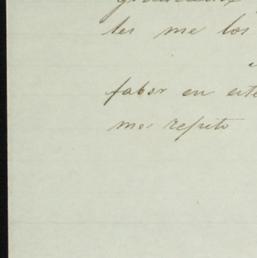 les me los
fabor en este
mos repito